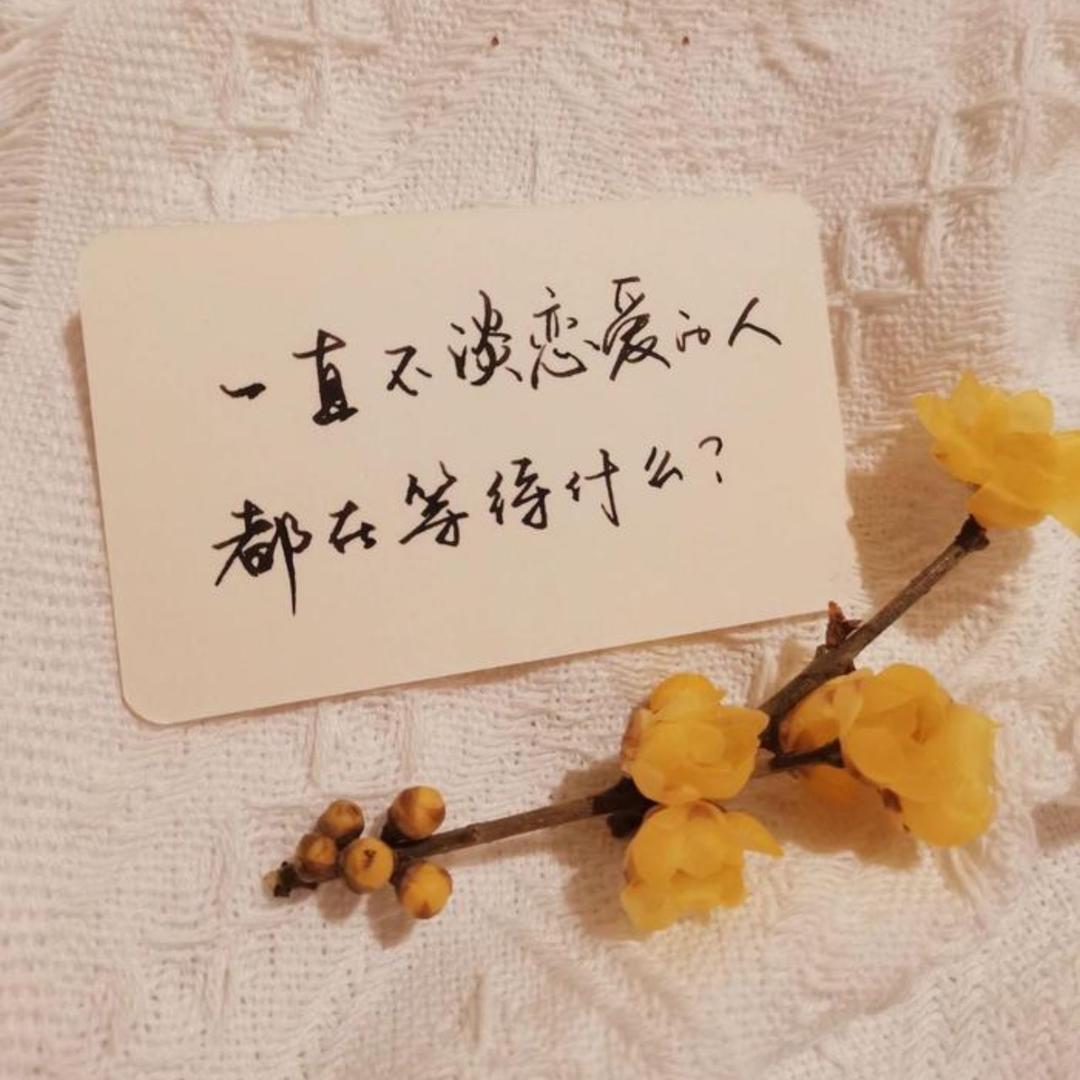 一直不谈恋爱的人
都在等待什么?